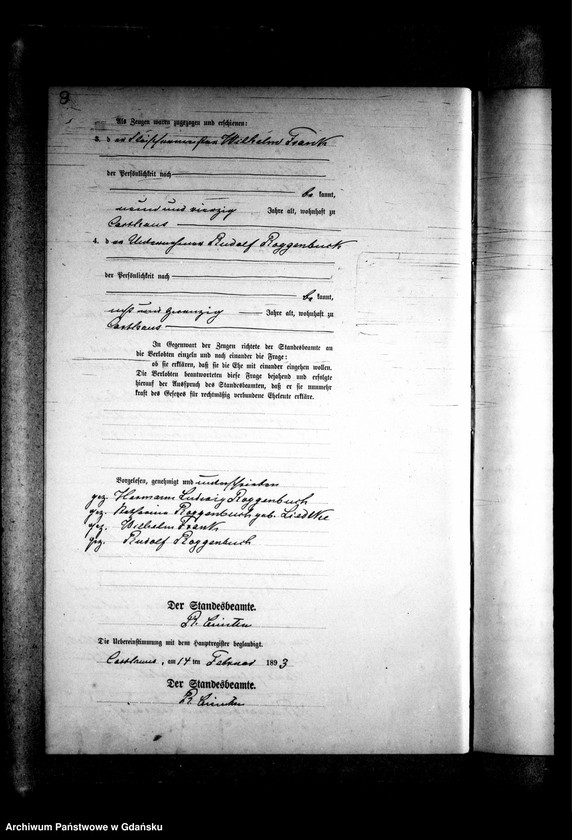 9
Als Zeugen waren zugezogen und erschienen:
3. der Fleischermeister Wilhelm Frank
der Persönlichkeit nach
be kannt,
neun und vierzig Jahre alt, wohnhaft zu
Carthaus
4. der Unternehmer Rudolf Roggenbuck
der Persönlichkeit nach
be kannt,
acht und zwanzig Jahre alt, wohnhaft zu
Carthaus
In Gegenwart der Zeugen richtete der Standesbeamte an
die Verlobten einzeln und nach einander die Frage:
ob sie erklären, daß sie die Ehe mit einander eingehen wollen.
Die Verlobten beantworteten diese Frage bejahend und erfolgte
hierauf der Ausspruch des Standesbeamten, daß er sie nunmehr
kraft des Gesetzes für rechtmäßig verbundene Eheleute erkläre.
Vorgelesen, genehmigt und unterschrieben
gez. Hermann Ludwig Roggenbuck
gez. Roggenbuck geb. Liedtke
gez. Wilhelm Frank
gez. Rudolf Roggenbuck
Der Standesbeamte.
Die Uebereinstimmung mit dem Hauptregister beglaubigt.
Carthaus, am 14 ten Februar 1893
Der Standesbeamte.
Archiwum Państwowe w Gdańsku